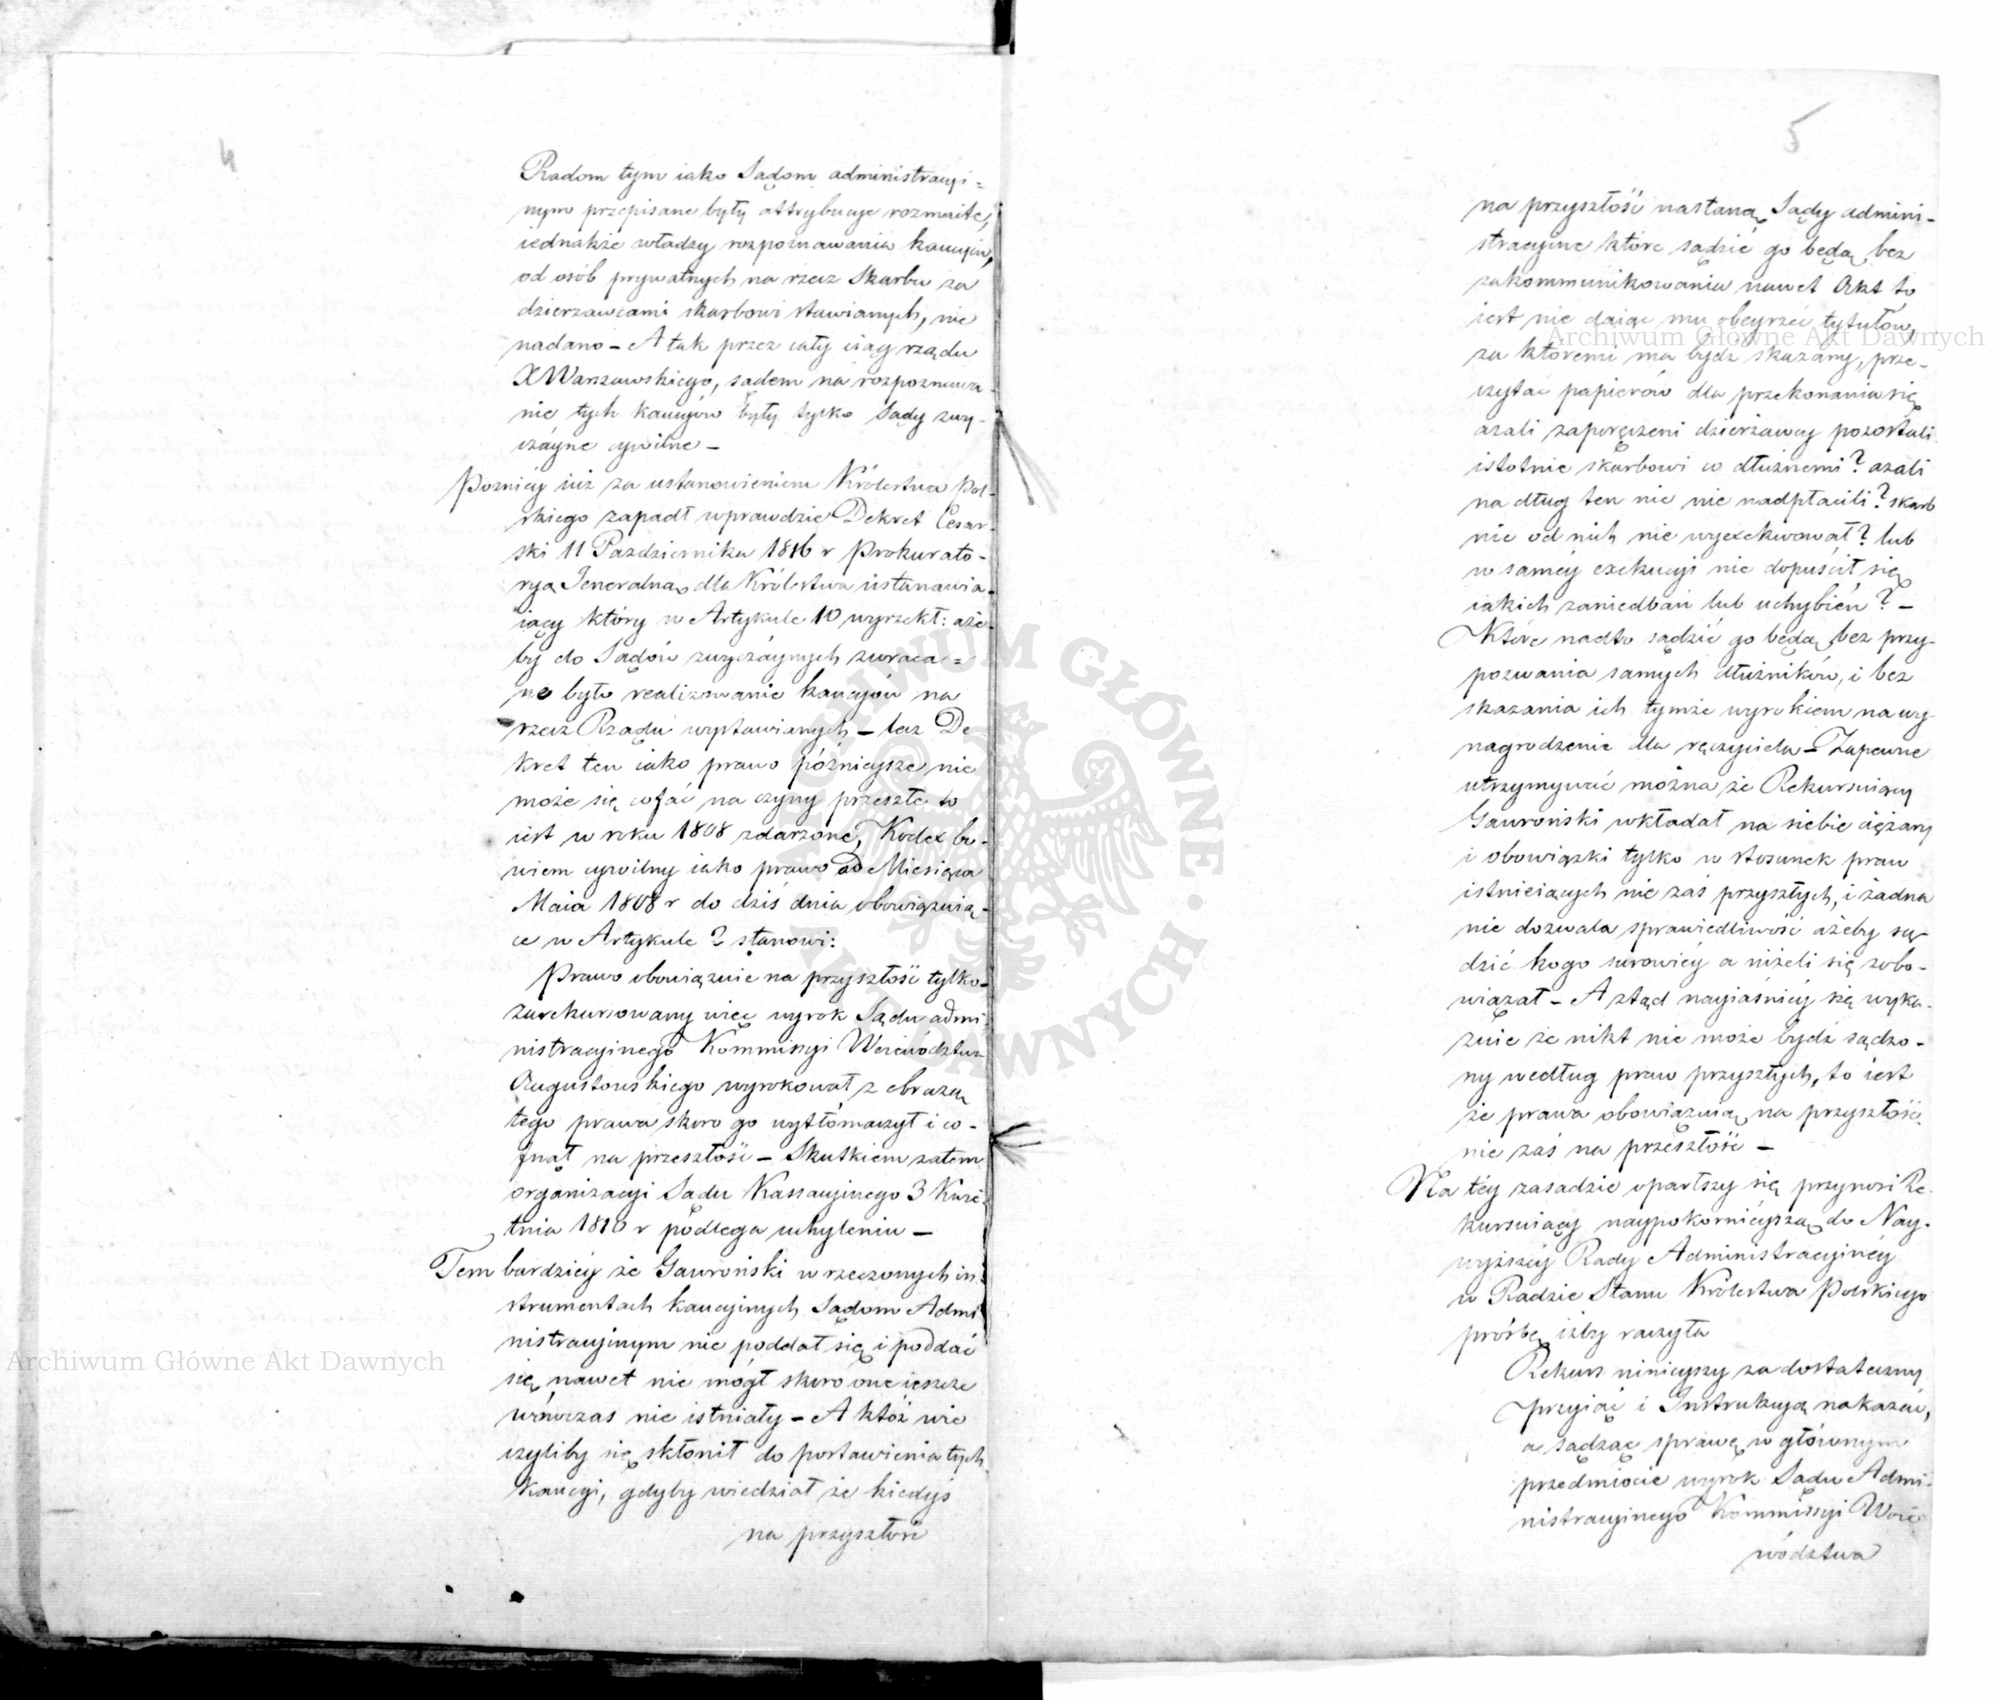 4
Radom tym iako Sądom administracyi=
nym przepisane były attrybucye rozmaite,
iednakże władzy rozpoznawania kaucyiów,
od osób prywatnych na rzecz Skarbu za
dzierzawcami skarbowi stawianych, nie
nadano – A tak przez cały ciąg rządu
X Warszawskiego, sądem na rozpoznawa-
nie tych kaucyiów były tylko Sądy zwy-
czayne cywilne –
Poznićy iuż za ustanowieniem Królestwa Pol-
skiego zapadł wprawdzie Dekret Cesar-
ski 11 Pazdziernika 1816 r Prokurato-
ryą Jeneralną dla Królestwa ustanawia-
iący który w Artykule 10 wyrzekł: aże-
by do Sądów zwyczáynych zwraca=
ne było realizowanie kaucyiów na
rzecz Rządu wystawianych – lecz De-
kret ten iako prawo późnieysze nie
może się cofać na czyny przeszłe to
iest w roku 1808 zdarzone, Kodex bo-
wiem cywilny iako prawo od Miesiąca
Maia 1808 r do dziś dnia obowiązuią-
ce w Artykule 2 stanowi:
Prawo obowiązuie na przyszłość tylko
Zarekursowany więc wyrok Sądu admi-
nistracyinego Kommissyi Woiewództwa
Augustowskiego wyrokował z obrazą
tego prawa skoro go wytłómaczył i co-
fnął na przeszłość – Skutkiem zatem
organizacyi Sądu Kassacyinego 3 Kwie-
tnia 1810 r podlega uchyleniu –
Tem bardzićy że Gawroński w rzeczonych in-
strumentach kaucyinych Sądom Admi
nistracyinym nie poddał się i poddać
się nawet nie mógł skoro one ieszcze
wówczas nie istniały – A któż wie
czyliby się skłonił do postawienia tych
Kaucyi, gdyby wiedział że kiedyś
na przyszłość
5
na przyszłość nastaną Sądy admini-
stracyine które sądzić go będą bez
zakommunikowania nawet Akt to
iest nie daiąc mu obeyrzeć tytułów,
za któremi ma bydź skazány, prze-
czytać papierów dla przekonania się
azali zaporęczeni dzierżawcy pozostali
istotnie skarbowi co dłużnemi? azali
na dług ten nic nie nadpłacili? skarb
nic od nich nie wyexekwował? lub
w samćy exekucyi nie dopuścił się
iakich zaniedbań lub uchybień? –
Które nadto sądzić go będą bez przy-
pozwania samych dłużników, i bez
skazania ich tymże wyrokiem na wy-
nagrodzenie dla ręczyciela – Zapewne
utrzymywać można że Rekursuiący
Gawroński wkładał na siebie ciężary
i obowiązki tylko w stosunek praw
istnieiących nie zaś przyszłych, i żadna
nie dozwala sprawiedliwość ażeby są-
dzić kogo surowićy a niżeli się zobo-
wiązał – A ztąd nayiaśnićy się wyka-
zuie że nikt nie może bydź sądzo-
ny według praw przyszłych, to iest
że prawa obowiązuią na przyszłość
nie zaś na przeszłość –
Na tćy zasadzie oparłszy się przynosi Re-
kursuiący naypokornićyszą do Nay-
wyższéy Rady Administracyinéy
w Radzie Stanu Królestwa Polskiego
prośbę iżby raczyła
Rekurs ninieyszy za dostateczny
przyiąć i Instrukcyą nakazać,
a sądząc sprawę w głównym
przedmiocie wyrok Sądu Admi-
nistracyinego Kommissyi Woie
wództwa
Archiwum Główne Akt Dawnych
Archiwum Główne Akt Dawnych
ARCHIWUM GŁÓWNE AKT DAWNYCH